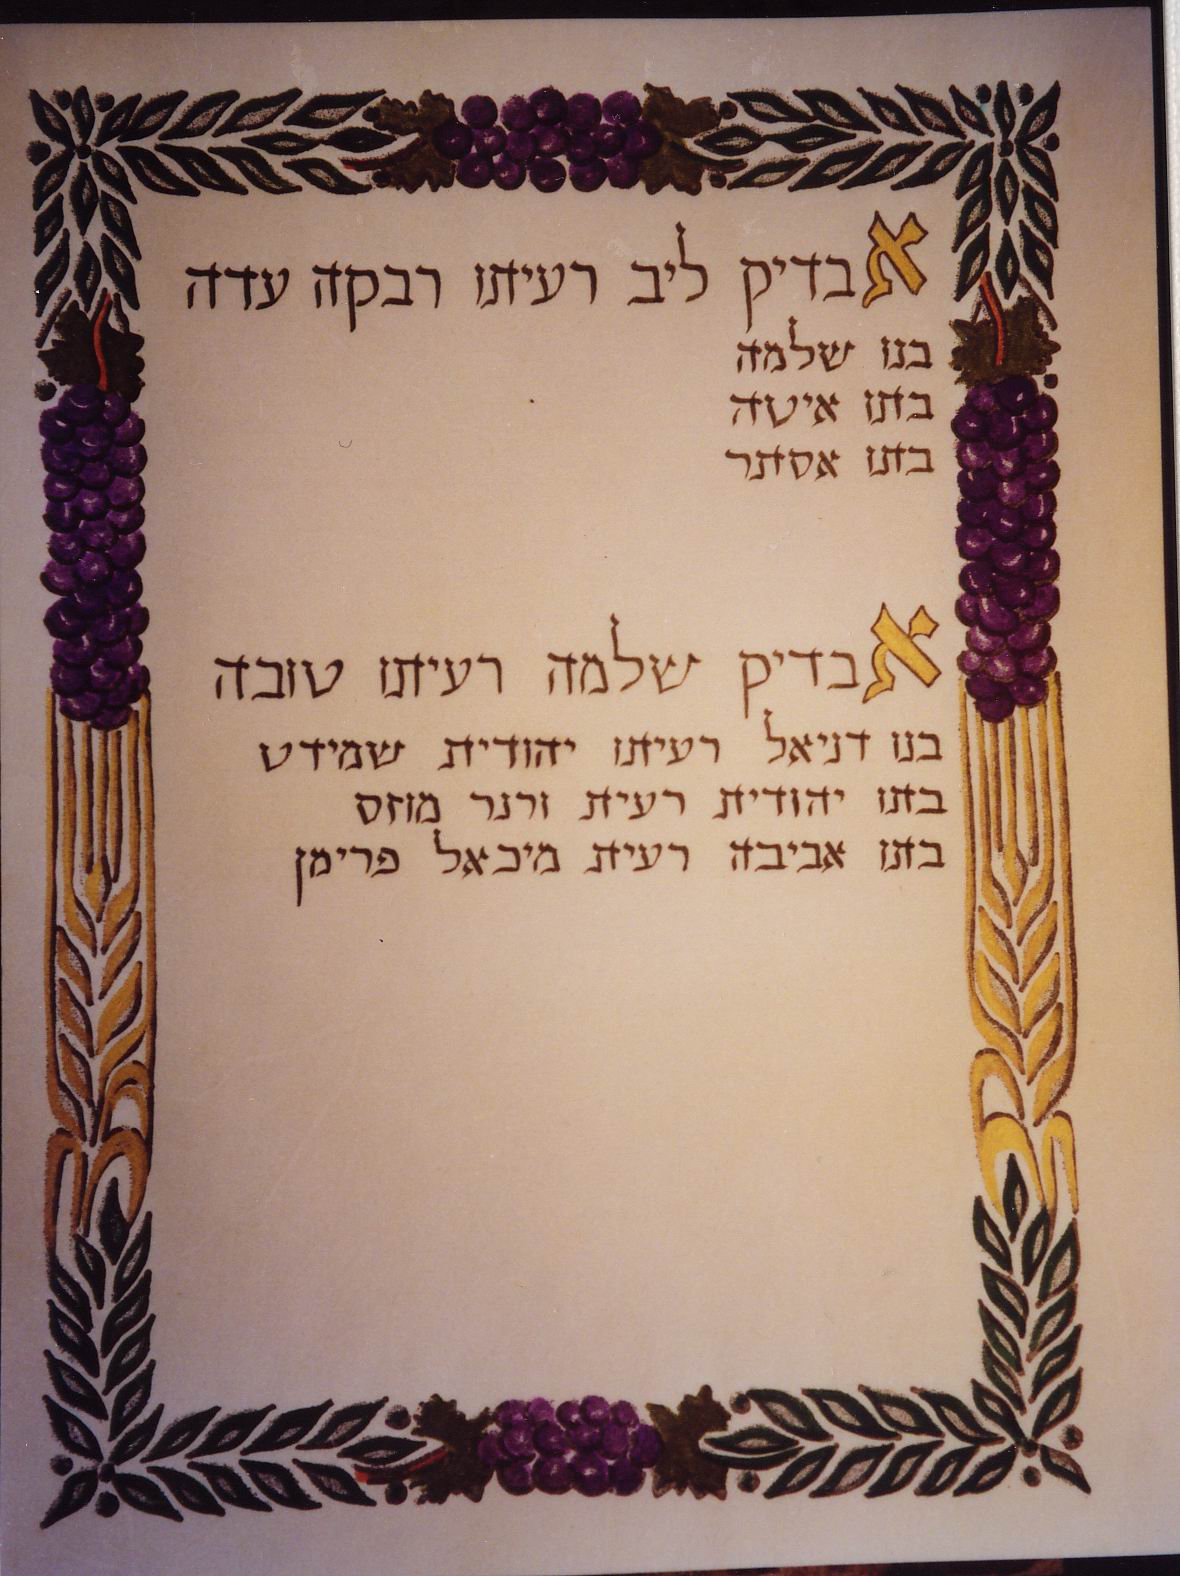 אבדיק ליב רעיתו רבקה עדה
בנו שלמה
בתו איטה
בתו אסתר
אבדיק שלמה רעיתו טובה
בנו דניאל רעיתו יהודית שמידט
בתו יהודית רעית ורנר מוזס
בתו אביבה רעית מיכאל פרימן